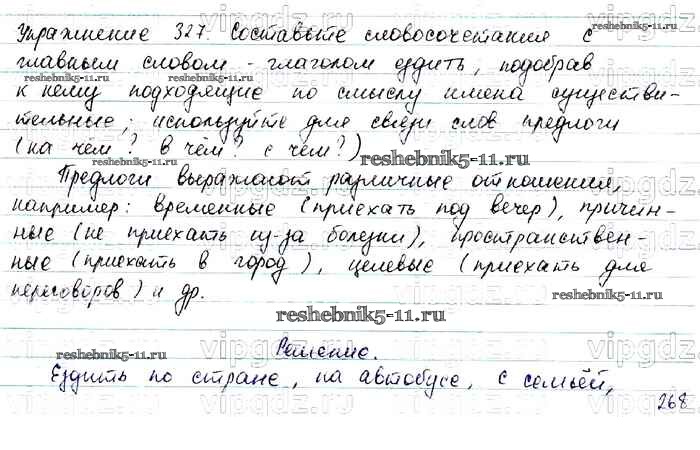 Упражнение 327. Составьте словосочетания с
главным словом - глаголом ездить, подобрав
reshebnik5-11.ru reshebnik5-11.ru
к нему подходящие по смыслу имена существи-
тельные; используйте для связи слов предлоги
(на чём? в чём? с чем?)
reshebnik5-11.ru
reshebnik5-11.ru
Предлоги выражают различные отношения,
например: временные (приехать под вечер), причин-
ные (не приехать из-за болезни), пространствен-
ные (приехать в город), целевые (приехать для
переговоров) и др.
reshebnik5-11.ru
Решение.
reshebnik5-11.ru reshebnik5-11.ru
Ездить по стране, на автобусе, с семьёй,
268